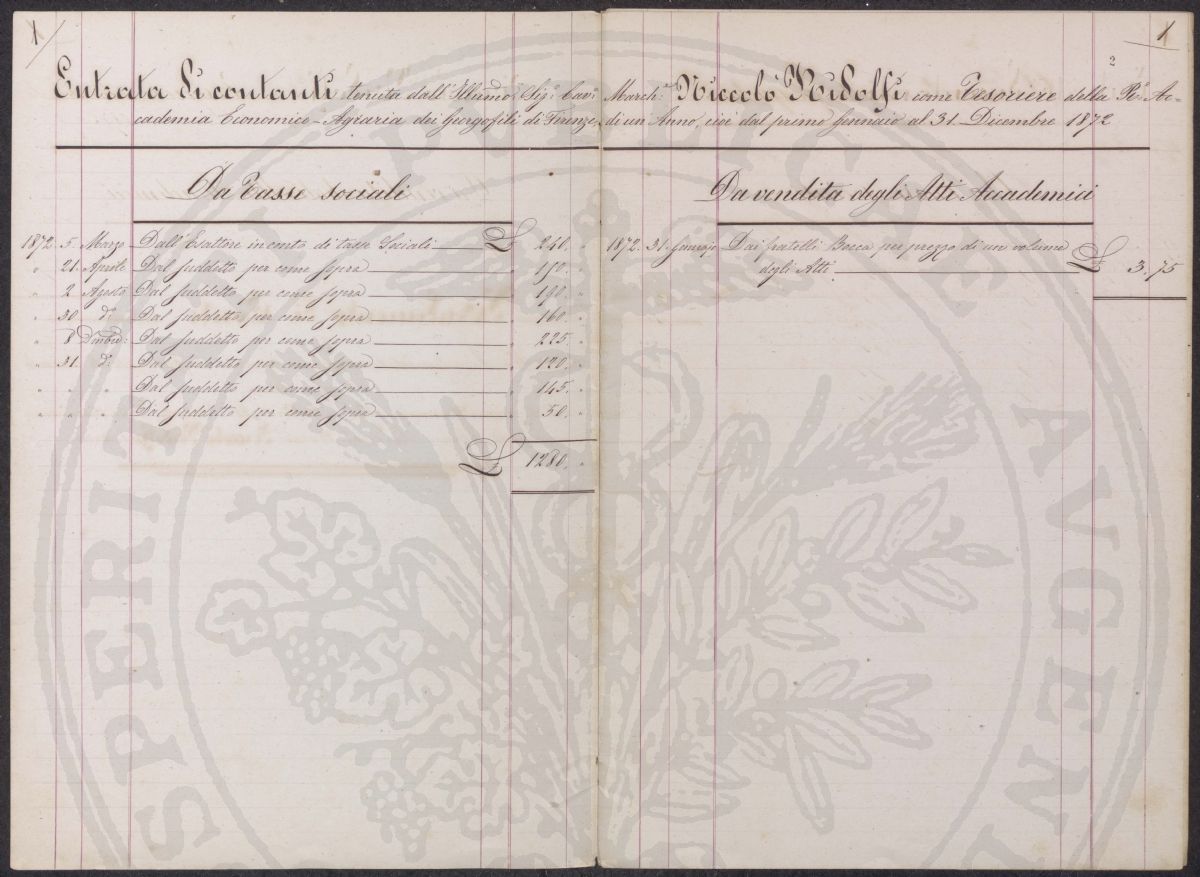 1
1
2
Entrata di contanti tenuta dall'Illumo: Sigr: Cavr: March: Niccolò Ridolfi come Tesoriere della Re: Ac-
cademia Economico-Agraria dei Georgofili di Firenze, di un Anno, cioè dal primo Gennaio al 31. Dicembre 1872
Da Tasse sociali
1872. 5. Marzo Dall'Esattore in conto di tasse Sociali £ 240. "
" 21. Aprile Dal suddetto per come sopra " 150. "
" 2 Agosto Dal suddetto per come sopra " 190. "
" 30 do: Dal suddetto per come sopra " 160. "
" 8 Dmbre: Dal suddetto per come sopra " 225. "
" 31. do: Dal suddetto per come sopra " 120. "
" " " Dal suddetto per come sopra " 145. "
" " " Dal suddetto per come sopra " 50. "
£ 1280. "
Da vendita degli Atti Accademici
1872. 31. Gennajo Dai fratelli Bocca per prezzo di un volume
degli Atti £ 3. 75
PROSPERITATI PUBLICAE AVGENDAE